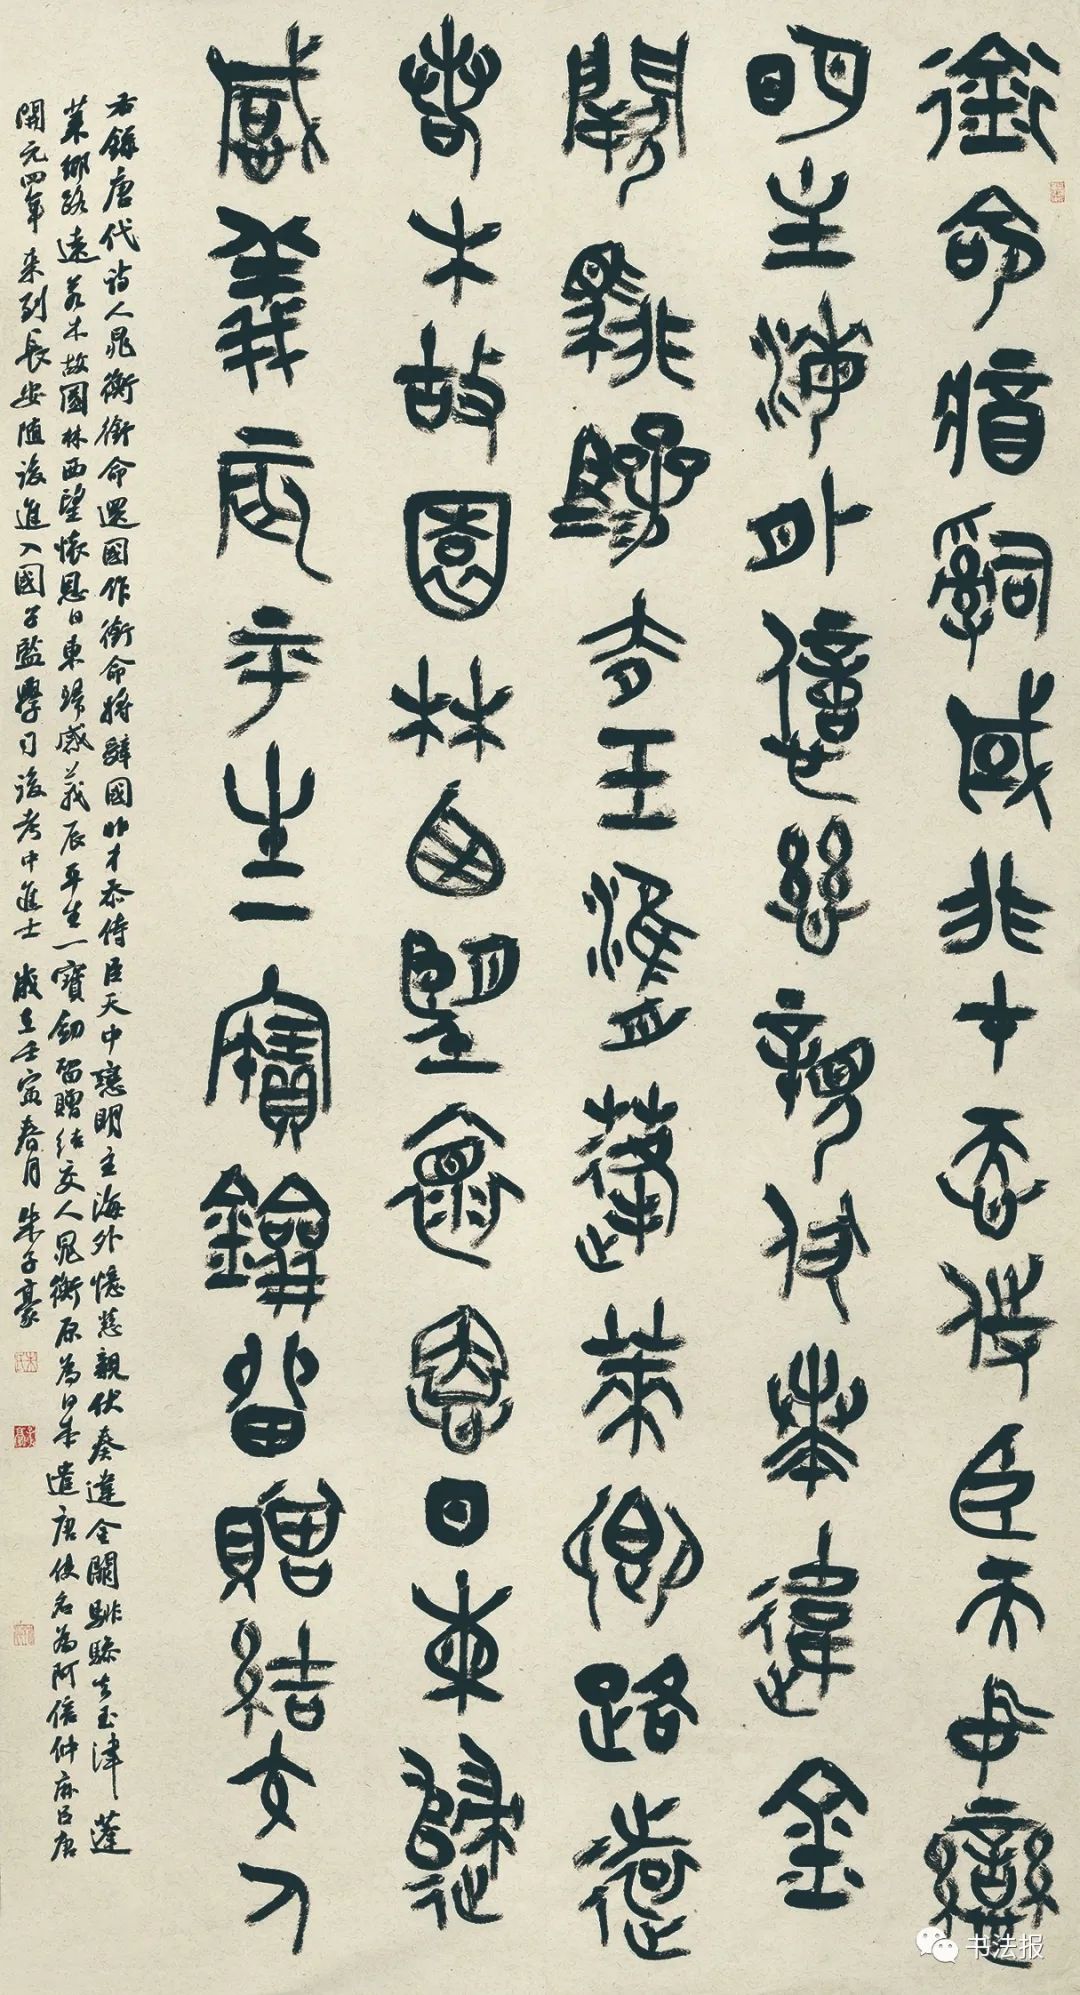 銜命將辭國非才忝侍臣天中戀
明主海外憶慈親伏奏違金
闕騑驂去玉津蓬萊鄉路遠
若木故園林西望懷恩日東歸
感義辰平生一寶劍留贈結交人
右錄唐代詩人晁衡銜命還國作銜命將辭國非才忝侍臣天中戀明主海外憶慈親伏奏違金闕騑驂去玉津蓬
萊鄉路遠若木故園林西望懷恩日東歸感義辰平生一寶劍留贈結交人晁衡原為日本遣唐使名為阿倍仲麻呂唐
開元四年來到長安隨後進入國子監學習後考中進士歲在壬寅春月朱子豪
书法报